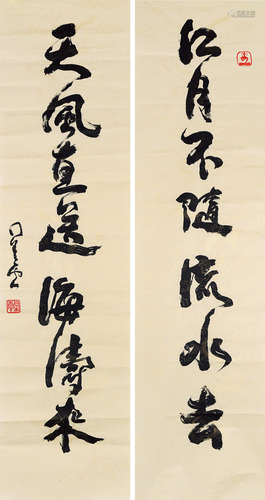 江月不随流水去
天風直送海濤來